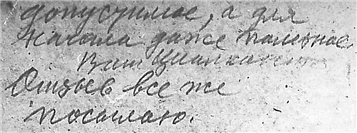 допустимое, а для
начала даже полезное.
Ваш Циолковский
Отзыв все же
посылаю.